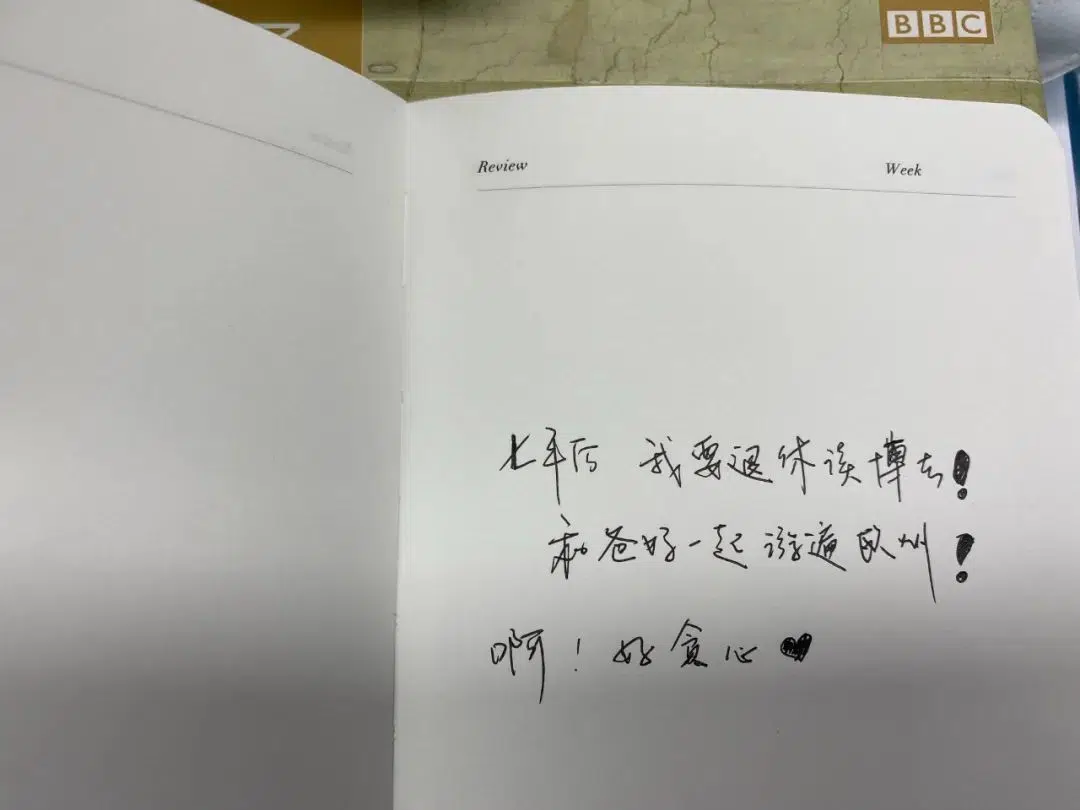 BBC
Review Week
七年后 我要退休读博去！
和爸妈一起游遍欧州！
啊！好贪心♥